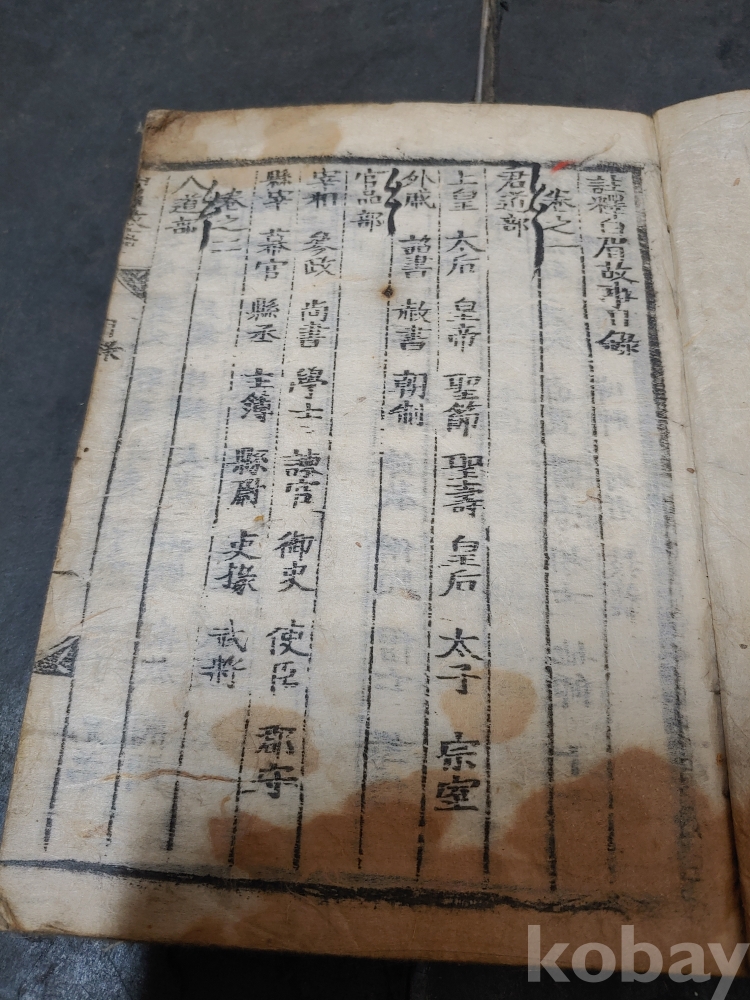 註釋白眉故事目錄
卷之一
君道部
上皇 太后 皇帝 聖節 聖壽 皇后 太子 宗室
外戚 詔書 赦書 朝制
官品部
宰相 參政 尚書 學士 諫官 御史 使臣 郡守
縣宰 幕官 縣丞 主簿 縣尉 吏掾 武將
卷之二
人道部
目錄
kobay